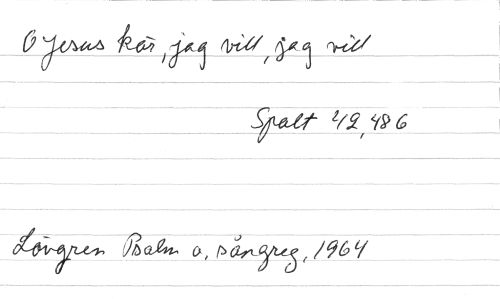 O Jesus kär, jag vill, jag vill
Spalt 42,486
Lövgren Psalm o. sångreg. 1964